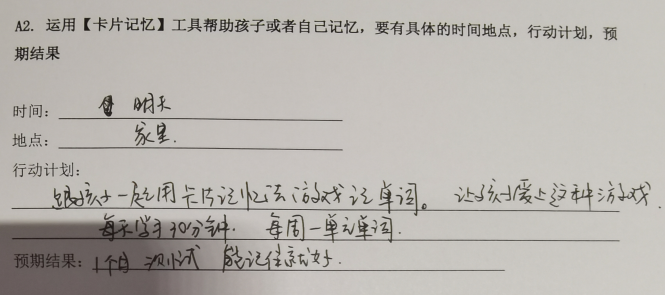 A2. 运用【卡片记忆】工具帮助孩子或者自己记忆，要有具体的时间地点，行动计划，预
期结果
时间： 明天
地点： 家里.
行动计划：
跟孩子一起用卡片记忆法游戏记单词。 让孩子爱上这种游戏.
每天学习30分钟. 每周一单元单词.
预期结果： 1个月 测试 能记住就好.